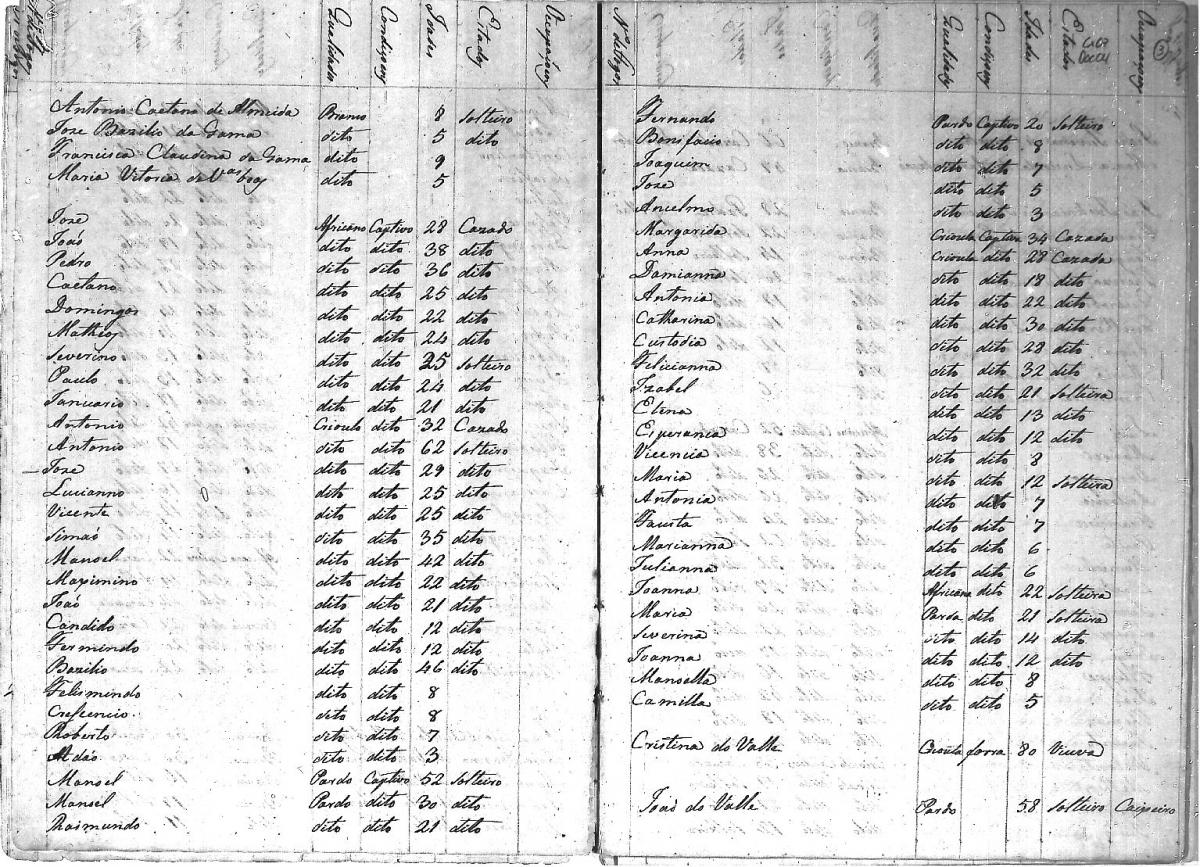 Qualidades Condiçoẽs Idades Estados Ocupaçoẽs
Antonio Caetano de Almeida Branco 8 Solteiro
Joze Bazilio da Gama dito 5 dito
Francisca Claudina da Gama dito 9
Maria Vitoria de dito 5
Joze Africano Captivo 28 Cazado
Joaõ dito dito 38 dito
Pedro dito dito 36 dito
Caetano dito dito 25 dito
Domingos dito dito 22 dito
Matheos dito dito 24 dito
Severino dito dito 25 Solteiro
Paulo dito dito 24 dito
Januario dito dito 21 dito
Antonio Crioulo dito 32 Cazado
Antonio dito dito 62 Solteiro
Joze dito dito 29 dito
Lucianno dito dito 25 dito
Vicente dito dito 25 dito
Simaõ dito dito 35 dito
Manoel dito dito 42 dito
Maximino dito dito 22 dito
Joaõ dito dito 21 dito
Candido dito dito 12 dito
Fermindo dito dito 12 dito
Bazilio dito dito 46 dito
Felismindo dito dito 8
Crescencio dito dito 8
Roberto dito dito 7
Adaõ dito dito 3
Manoel Pardo Captivo 52 Solteiro
Manoel Pardo dito 30 dito
Raimundo dito dito 21 dito
Nº de fogos Qualidades Condiçoẽs Idades Estados Ocupaçoẽs
3
Fernando Pardo Captivo 20 Solteiro
Bonifacio dito dito 8
Joaquim dito dito 7
Joze dito dito 5
Ancelmo dito dito 3
Margarida Crioula Captiva 34 Cazada
Anna Crioula dito 28 Cazada
Damianna dito dito 18 dito
Antonia dito dito 22 dito
Catharina dito dito 30 dito
Custodia dito dito 28 dito
Felicianna dito dito 32 dito
Izabel dito dito 21 Solteira
Elena dito dito 13 dito
Esperancia dito dito 12 dito
Vicencia dito dito 8
Maria dito dito 12 Solteira
Antonia dito dito 7
Fausta dito dito 7
Marianna dito dito 6
Julianna dito dito 6
Joanna Africana dito 22 Solteira
Maria Parda dito 21 Solteira
Severina dito dito 14 dito
Joanna dito dito 12 dito
Manoella dito dito 8
Camilla dito dito 5
Cristina do Valle Crioula forra 80 Viuva
Joaõ do Valle Pardo 58 Solteiro Carpeiro